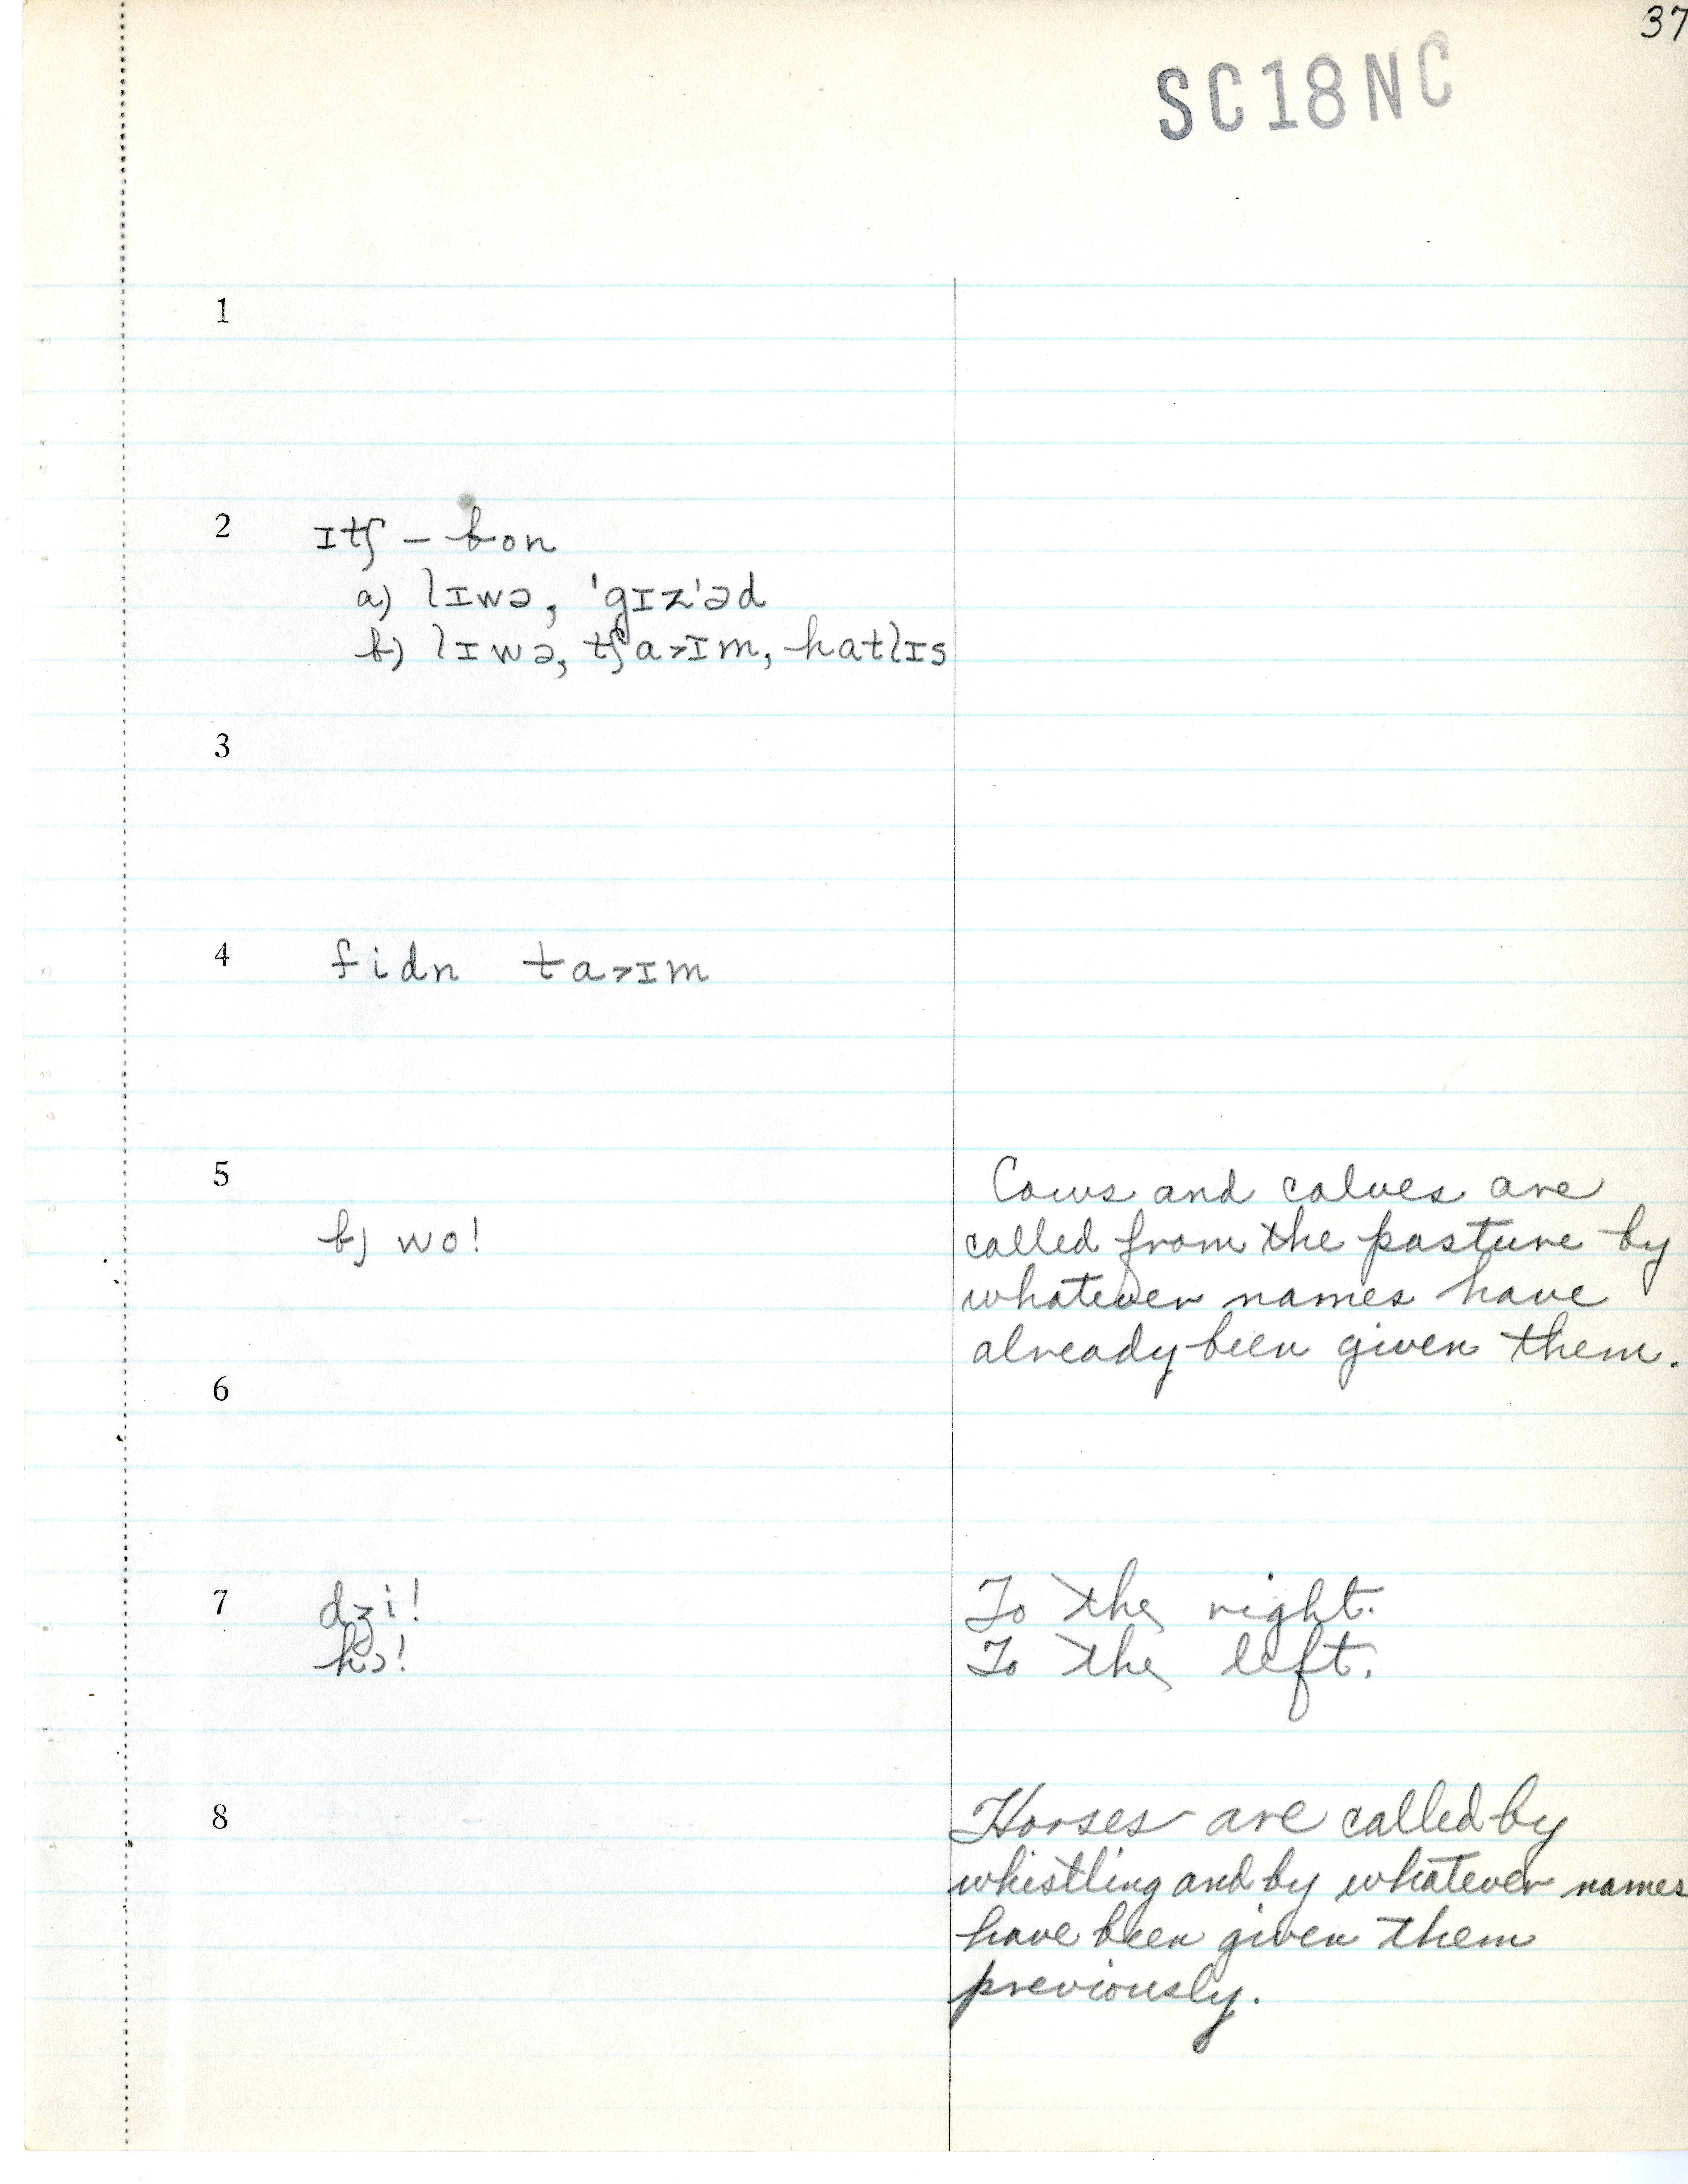 37
SC18NC
1
2 ɪtʃ – bon
a) lɪwə, 'gɪz'əd
b) lɪwə, tʃa>ɪm, hatlɪs
3
4 fidn ta>ɪm
5 Cows and calves are
b) wo! called from the pasture by
whatever names have
already been given them.
6
7 dʒi! To the right.
hɔ! To the left.
8 Horses are called by
whistling and by whatever names
have been given them
previously.